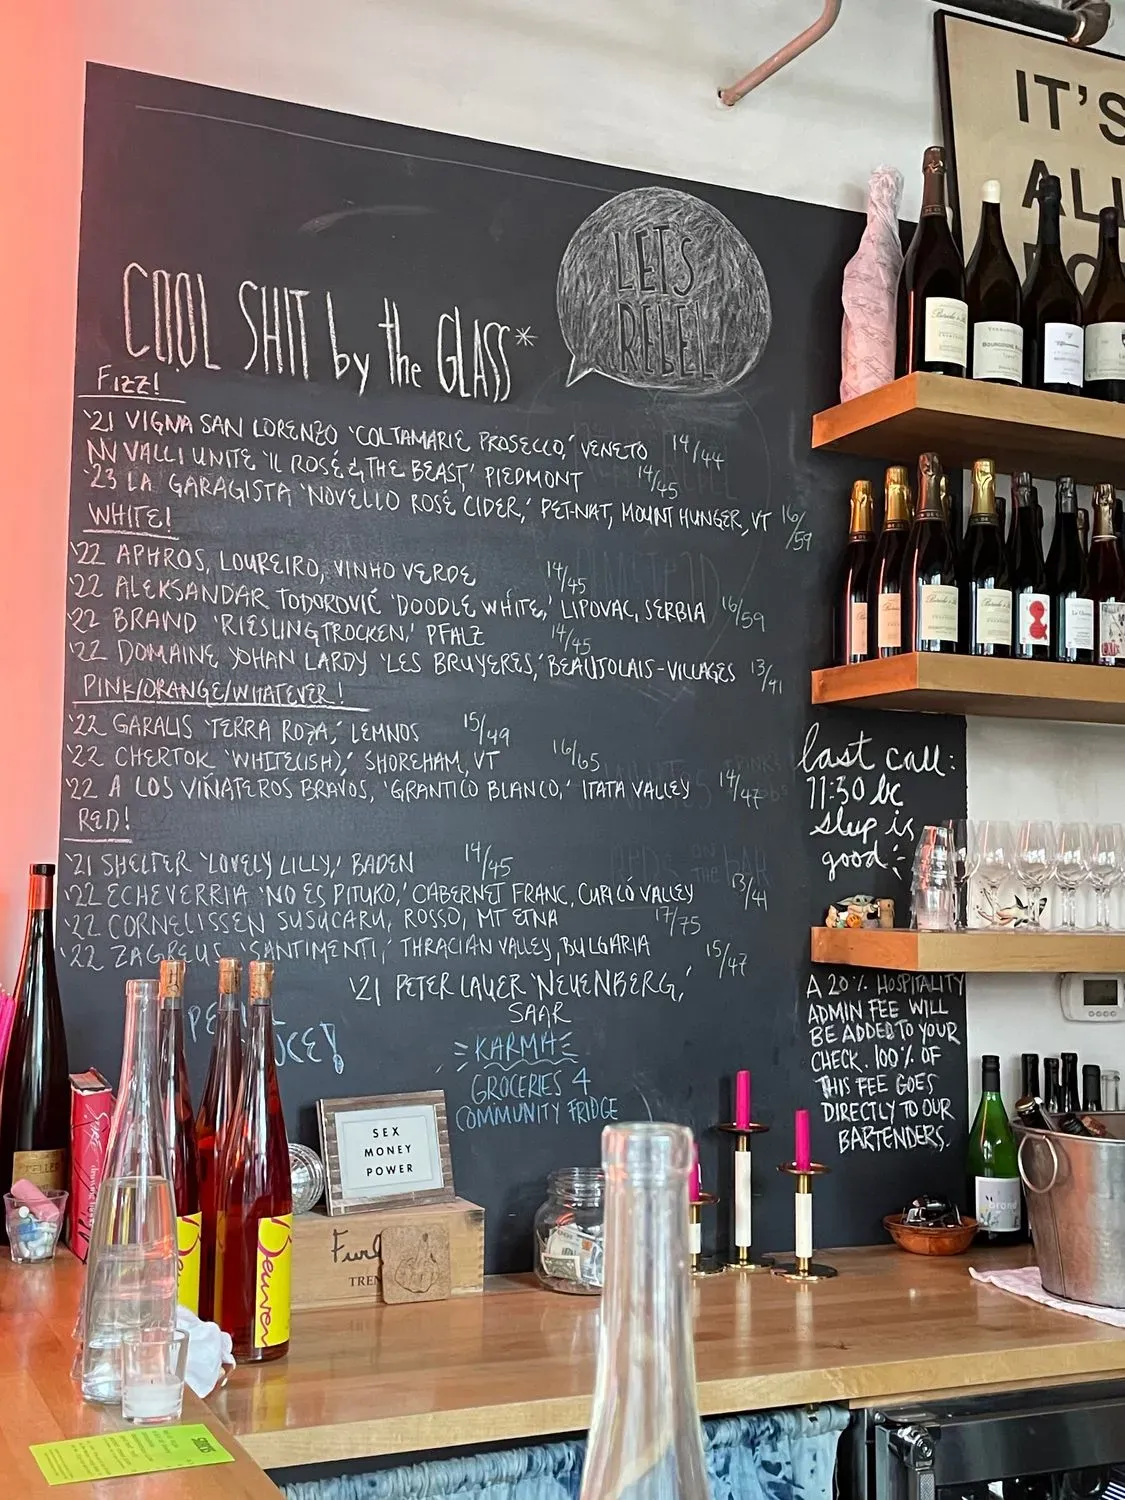 COOL SHIT by the GLASS*
LET'S
REBEL
FIZZ!
'21 VIGNA SAN LORENZO 'COLTAMARIE PROSECCO,' VENETO 14/44
NV VALLI UNITE 'IL ROSÉ & THE BEAST,' PIEDMONT 14/45
'23 LA GARAGISTA 'NOVELLO ROSÉ CIDER,' PET-NAT, MOUNT HUNGER, VT 16/59
WHITE!
'22 APHROS, LOUREIRO, VINHO VERDE 14/45
'22 ALEKSANDAR TODOROVIĆ 'DOODLE WHITE,' LIPOVAC, SERBIA 16/59
'22 BRAND 'RIESLING TROCKEN,' PFALZ 14/45
'22 DOMAINE YOHAN LARDY 'LES BRUYERES,' BEAUJOLAIS-VILLAGES 13/41
PINK/ORANGE/WHATEVER!
'22 GARALIS 'TERRA ROZA,' LEMNOS 15/49
'22 CHERTOK 'WHITE(ISH),' SHOREHAM, VT 16/65
'22 A LOS VIÑATEROS BRAVOS, 'GRANTICO BLANCO,' ITATA VALLEY 14/47
RED!
'21 SHELTER 'LOVELY LILLY,' BADEN 14/45
'22 ECHEVERRIA 'NO ES PITUKO,' CABERNET FRANC, CURICÓ VALLEY 13/41
'22 CORNELISSEN SUSUCARU, ROSSO, MT ETNA 17/75
'22 ZAGREUS 'SANTIMENTI,' THRACIAN VALLEY, BULGARIA 15/47
'21 PETER LAUER 'NEUENBERG,'
SAAR
KARMA
GROCERIES 4
COMMUNITY FRIDGE
last call:
11:30 bc
sleep is
good :)
A 20% HOSPITALITY
ADMIN FEE WILL
BE ADDED TO YOUR
CHECK. 100% OF
THIS FEE GOES
DIRECTLY TO OUR
BARTENDERS.
IT'S
ALL
SEX
MONEY
POWER
Furl
TREN
brand